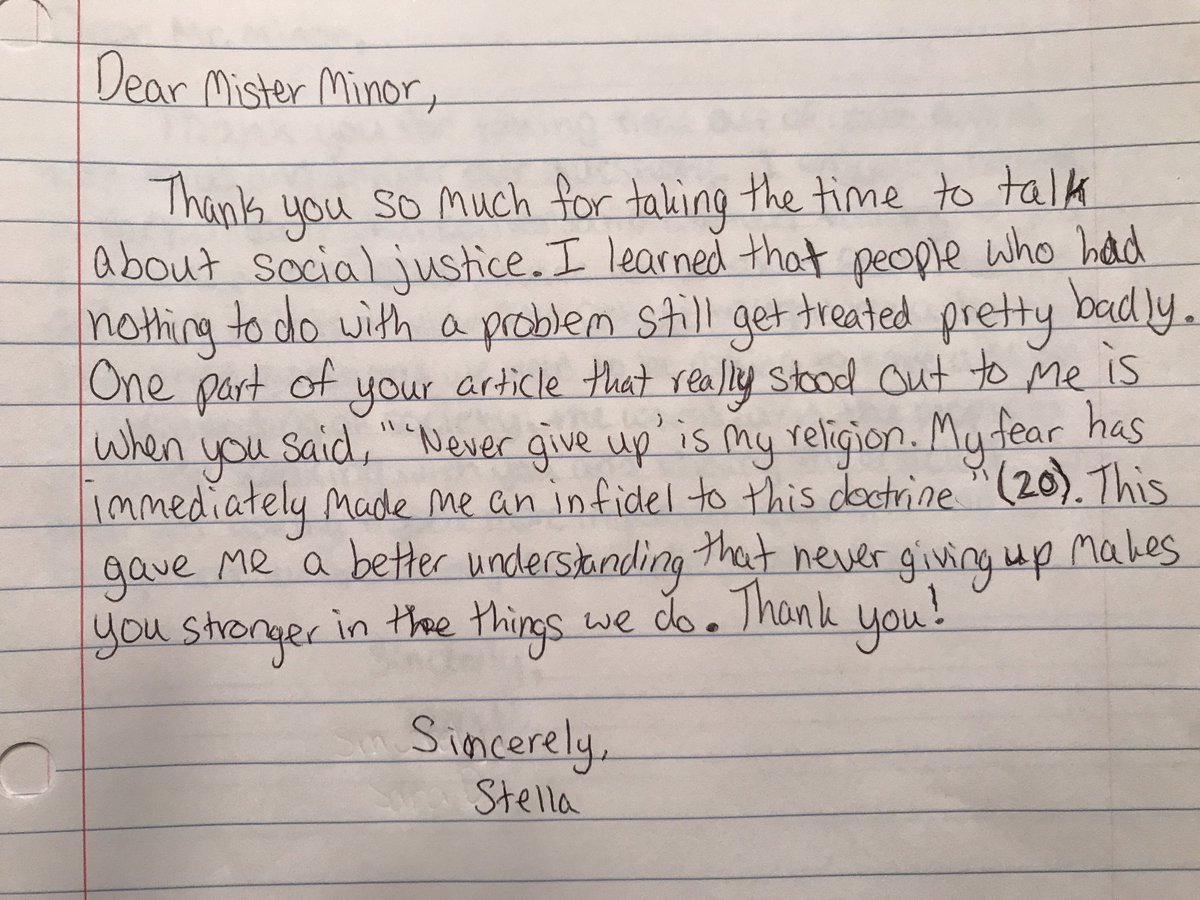 Dear Mister Minor,
Thank you so much for taking the time to talk
about social justice. I learned that people who had
nothing to do with a problem still get treated pretty badly.
One part of your article that really stood out to me is
when you said, "'Never give up' is my religion. My fear has
immediately made me an infidel to this doctrine" (20). This
gave me a better understanding that never giving up makes
you stronger in the things we do. Thank you!
Sincerely,
Stella